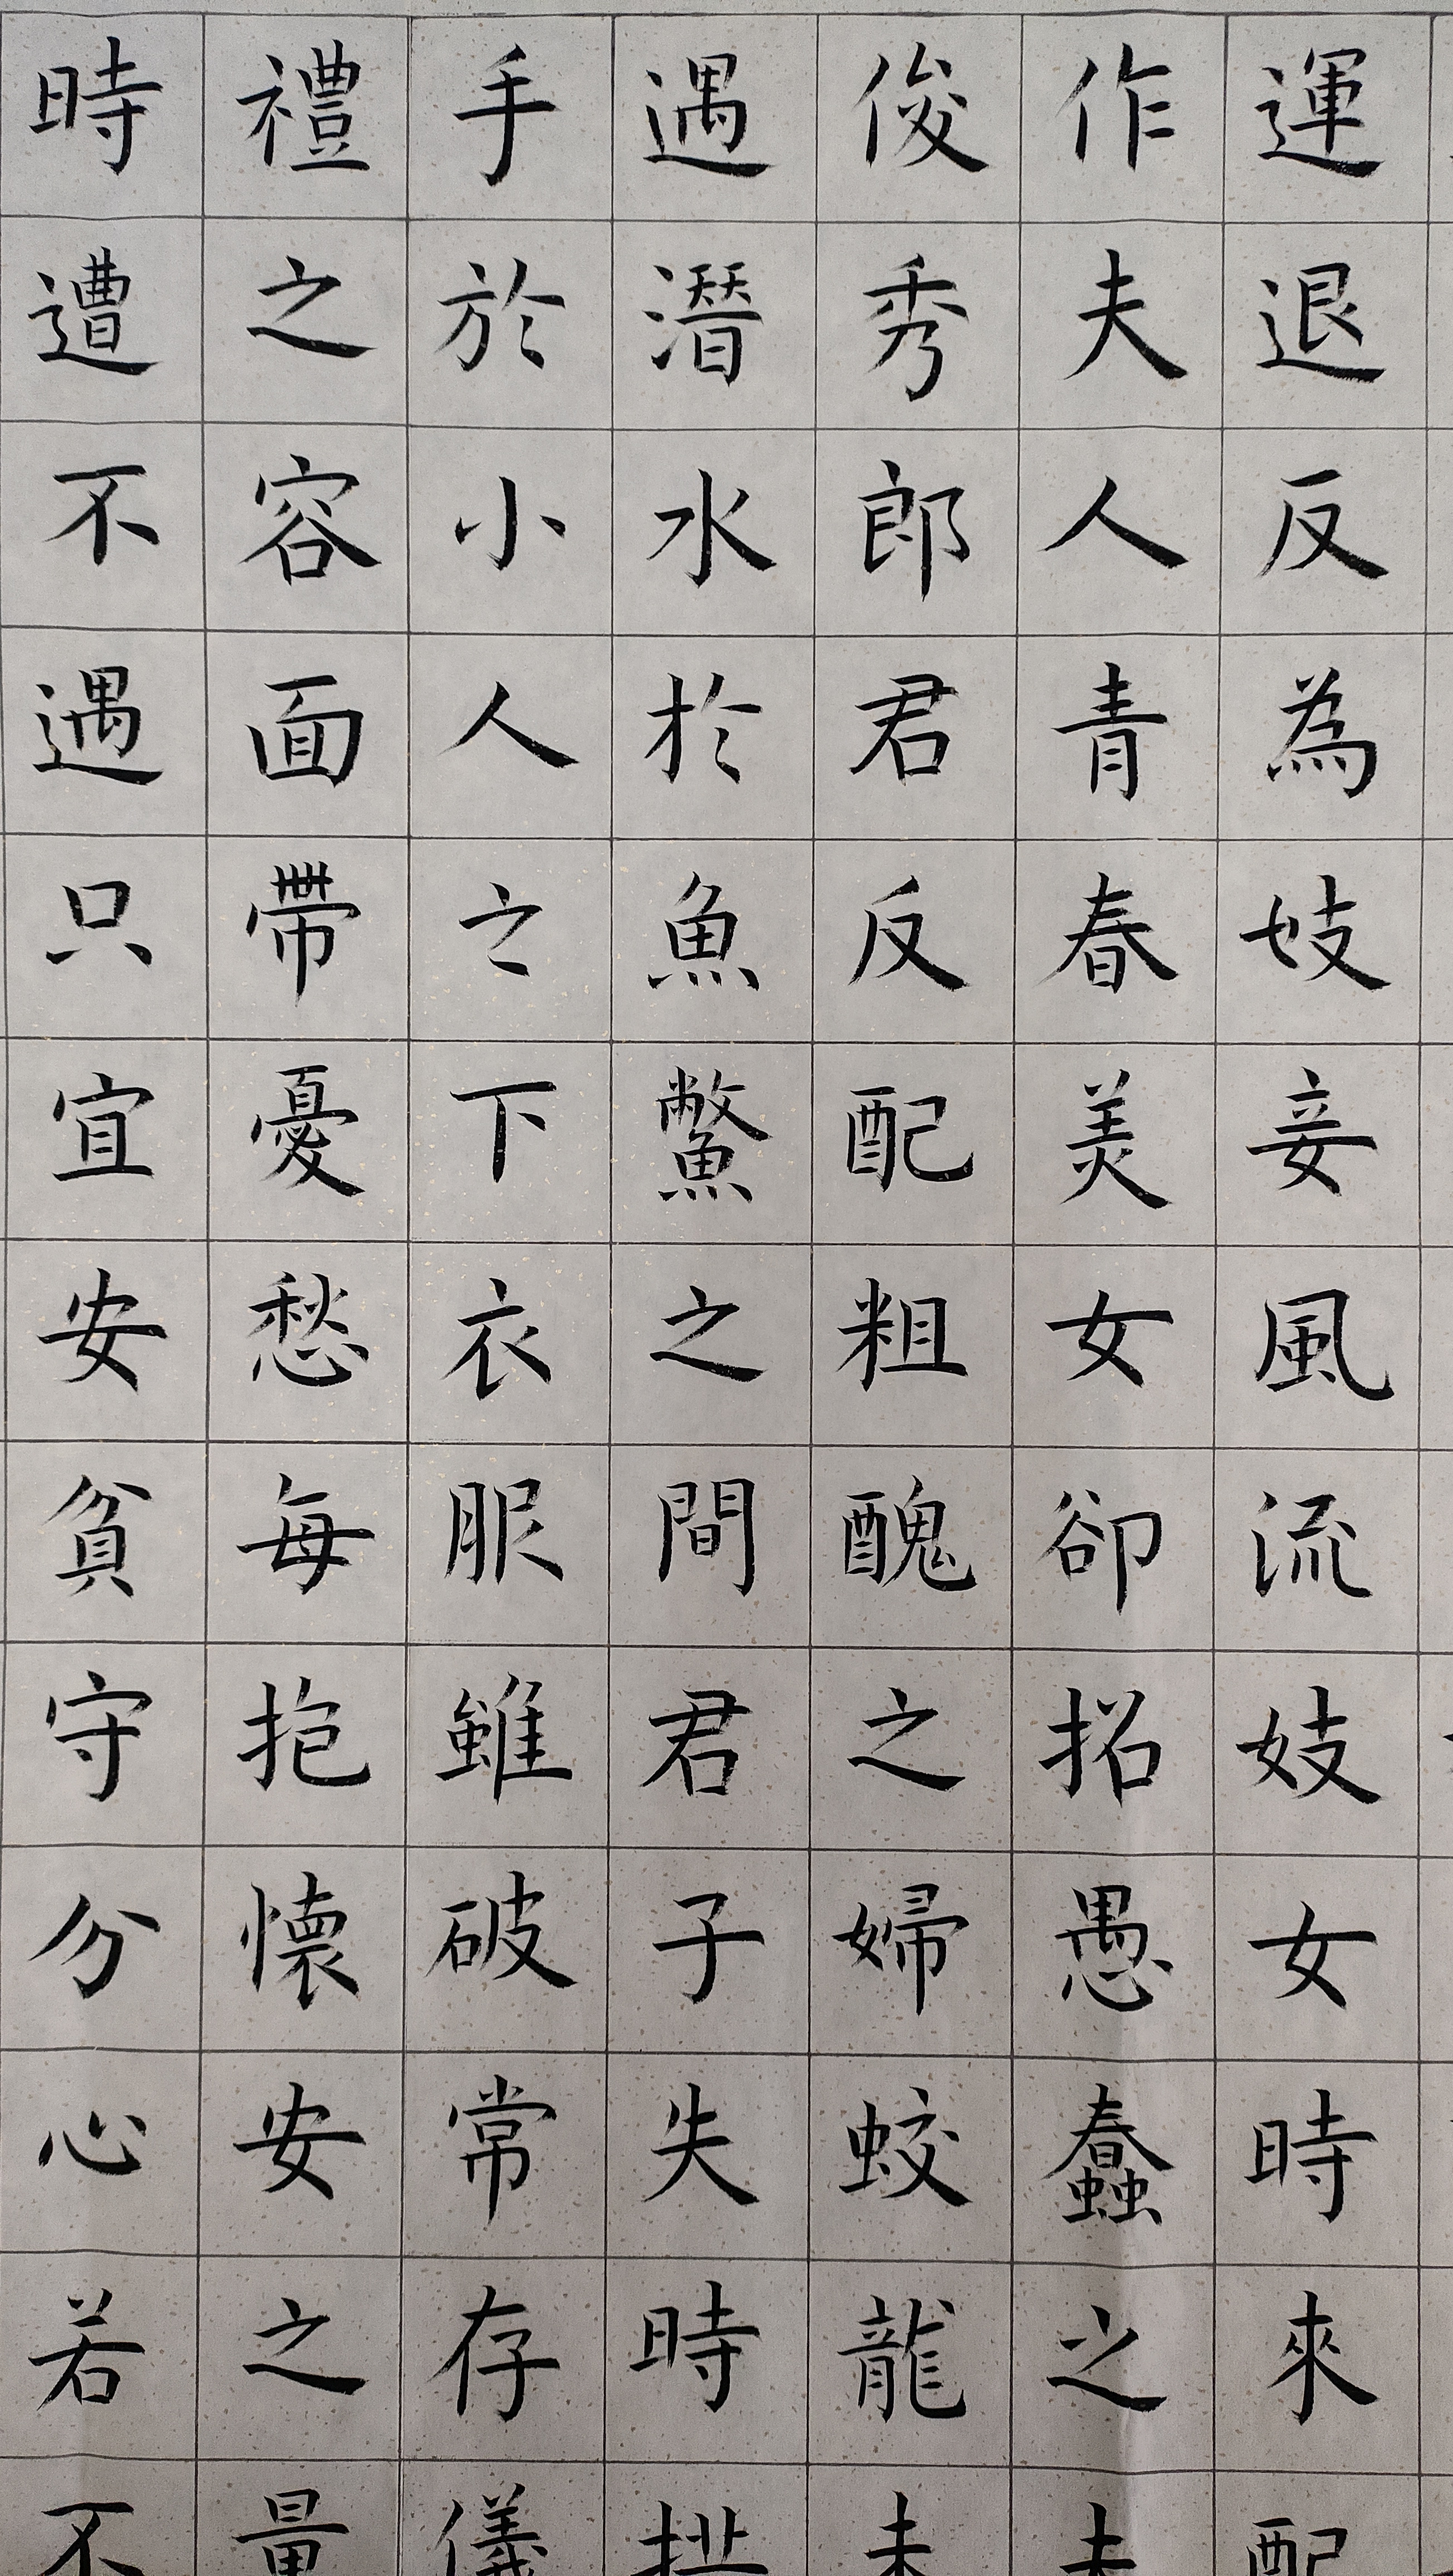 運退反為妓妾風流妓女時來配
作夫人青春美女卻招愚蠢之夫
俊秀郎君反配粗醜之婦蛟龍未
遇潛水於魚鱉之間君子失時拱
手於小人之下衣服雖破常存儀
禮之容面帶憂愁每抱懷安之量
時遭不遇只宜安貧守分心若不